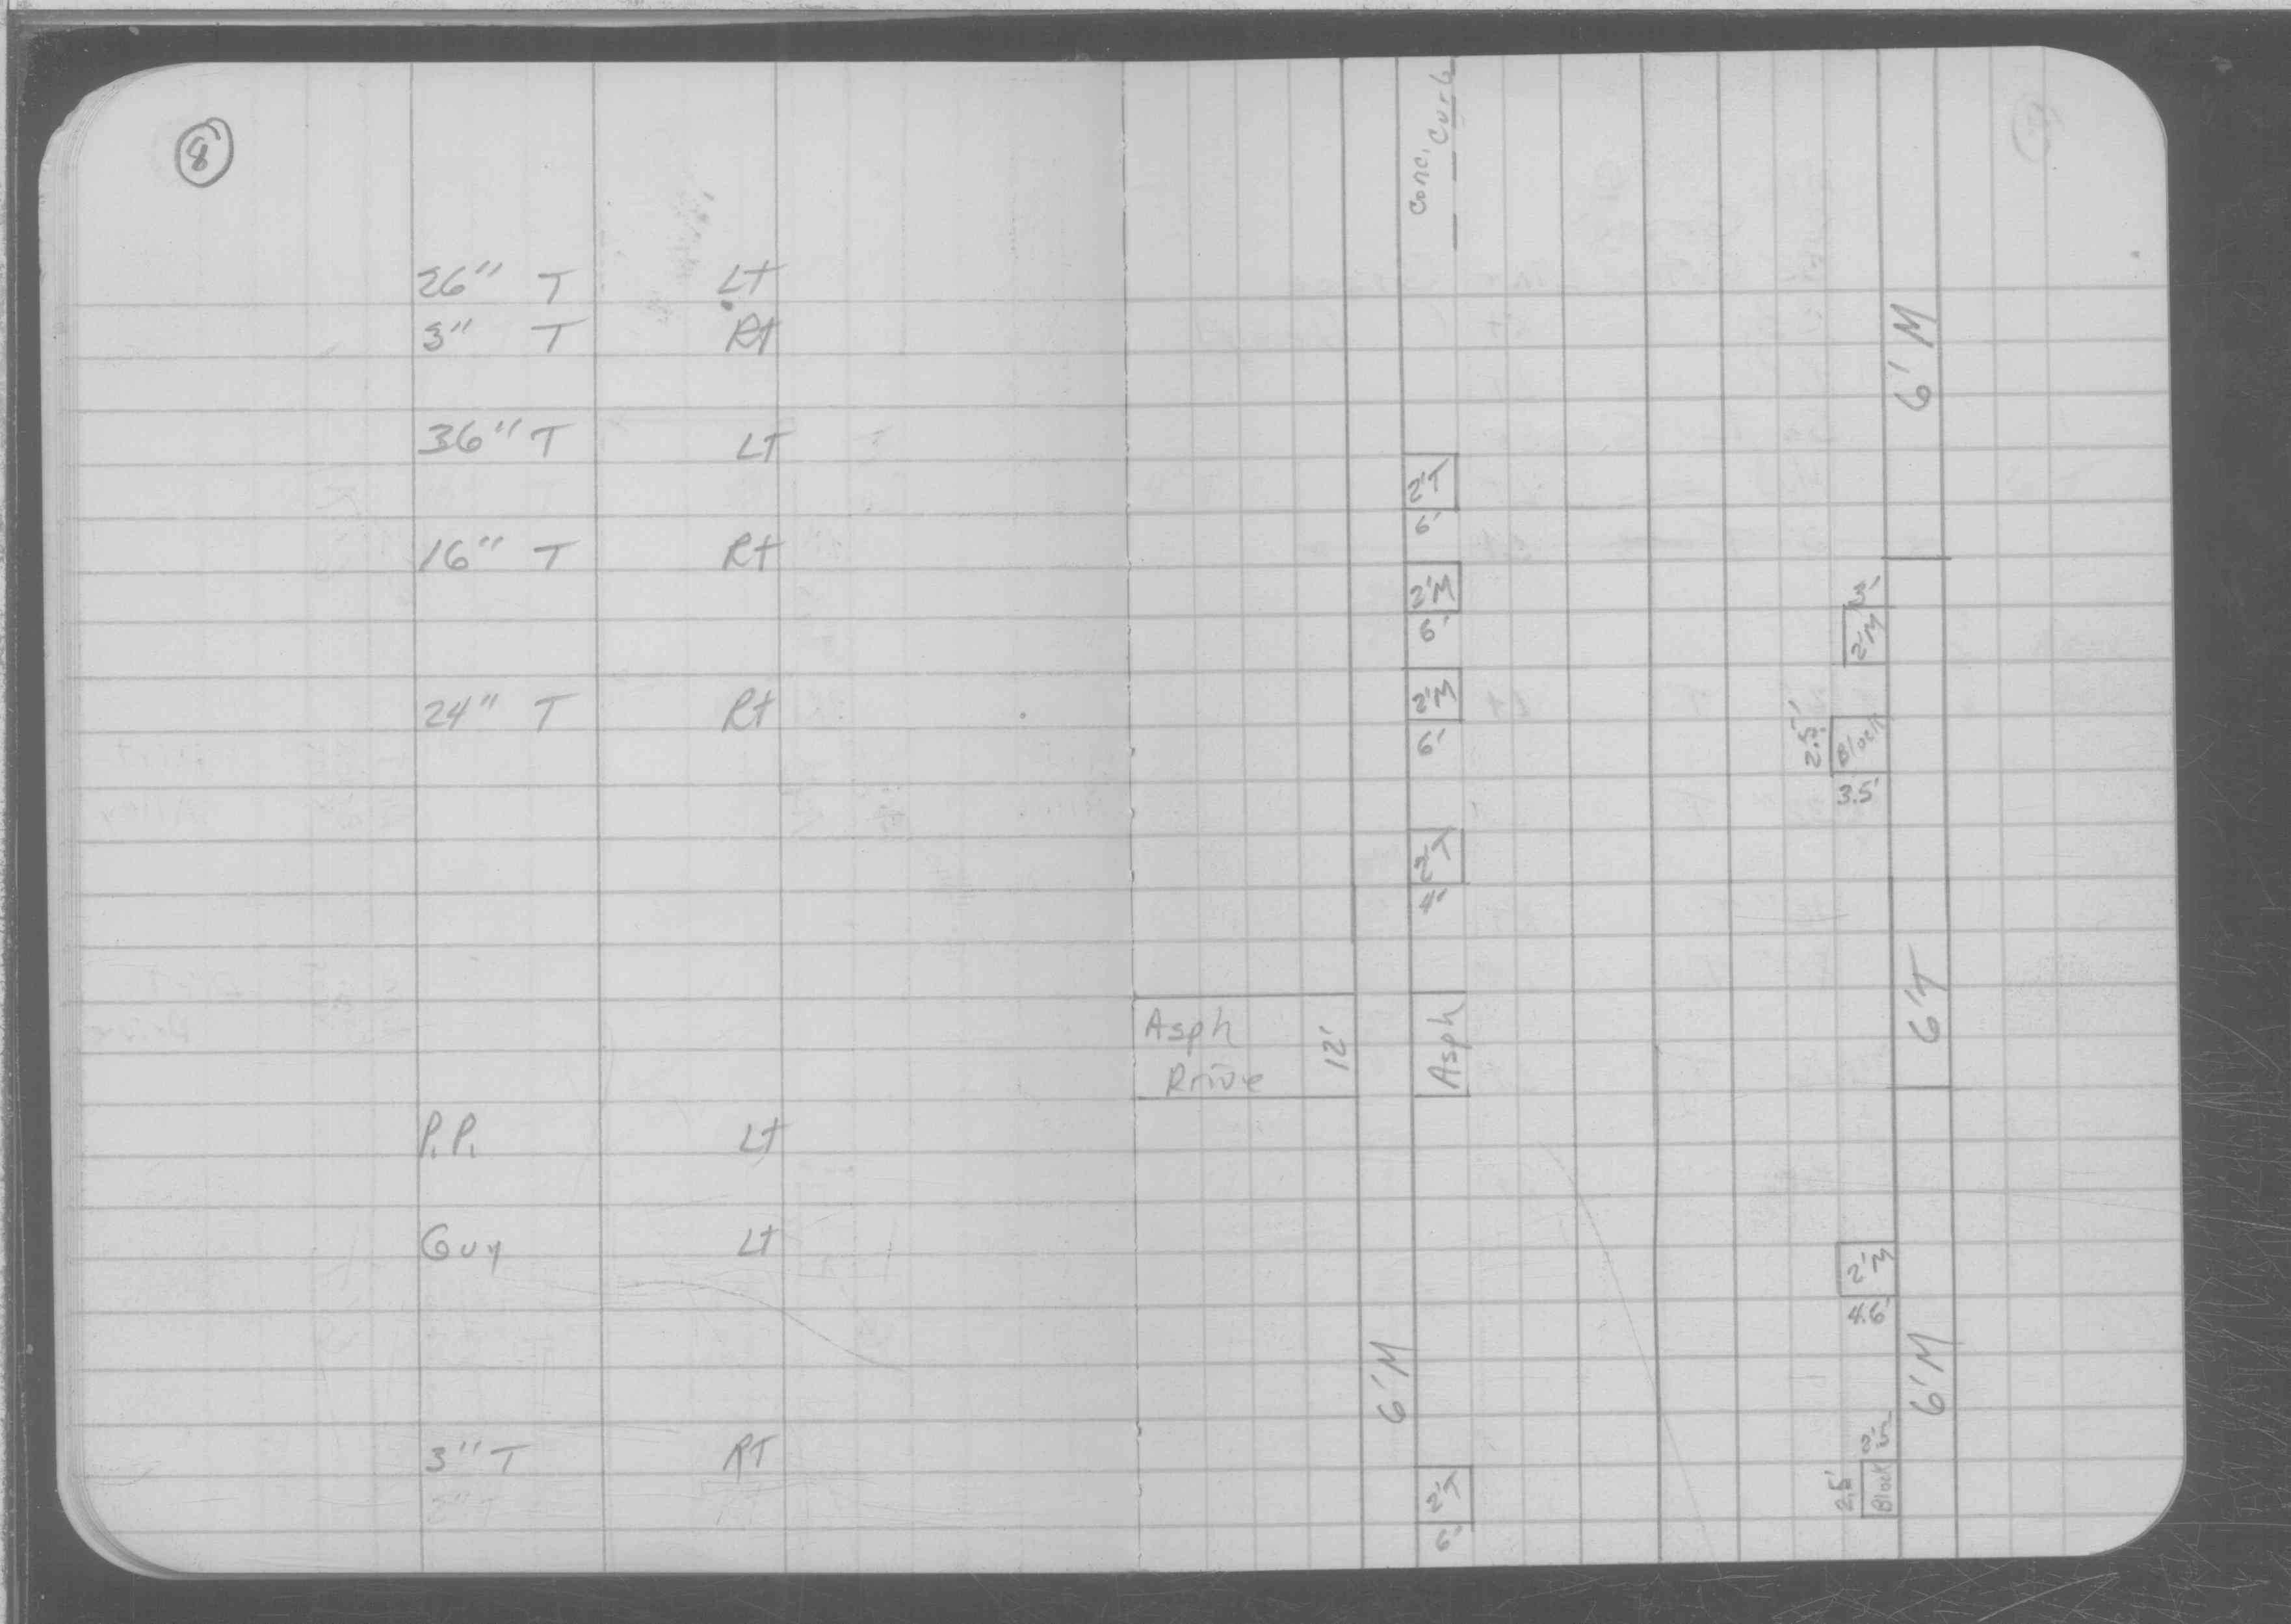 8
26" T Lt
3" T Rt
36" T LT
16" T Rt
24" T Rt
P.P. Lt
Guy Lt
3" T RT
Conc. Curb
6' M
2'T
6'
2'M
6'
3'
2'M
2'M
6'
2.5'
Block
3.5'
2'T
4'
Asph
Drive
12'
Asph
6'T
2'M
4.6'
6'M
6'M
2'T
6'
2.5'
Block